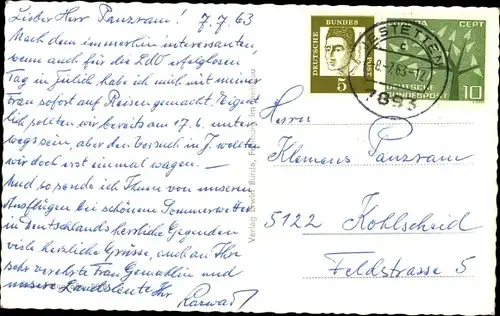 Lieber Herr Panzram! 7.7.63
Nach dem immerhin interessanten,
wenn auch für die ZdV erfolglosen
Tag in Jülich habe ich mich mit meiner
Frau sofort auf Reisen gemacht. Eigent-
lich sollten wir bereits am 17.6. unter-
wegs sein, aber den Versuch in J. wollten
wir doch erst einmal wagen. —
Und so sende ich Ihnen von unseren
Ausflügen bei schönem Sommerwetter
in Deutschlands herrliche Gegenden
viele herzliche Grüsse, auch an Ihre
sehr verehrte Frau Gemahlin und
unsere Landsleute Ihr
Verlag Franz Burda, Offenburg im
DEUTSCHE BUNDESPOST
5
CEPT
DEUTSCHE
BUNDESPOST
10
ESTETTEN
c
8.-7.63-17
7893
Herrn
Klemens Panzram
5122 Kohlscheid
Feldstrasse 5